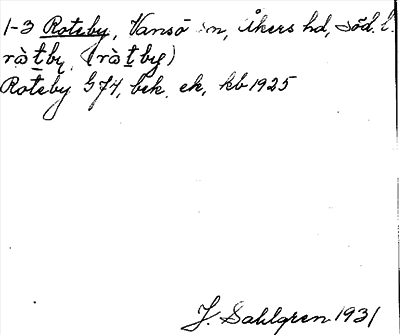 1-3 Roteby, Vansö sn, Åkers hd, Söd. l.
rà̀tby, (rà̀tby)
Roteby G74, bek. ek, kb 1925
J. Sahlgren 1931